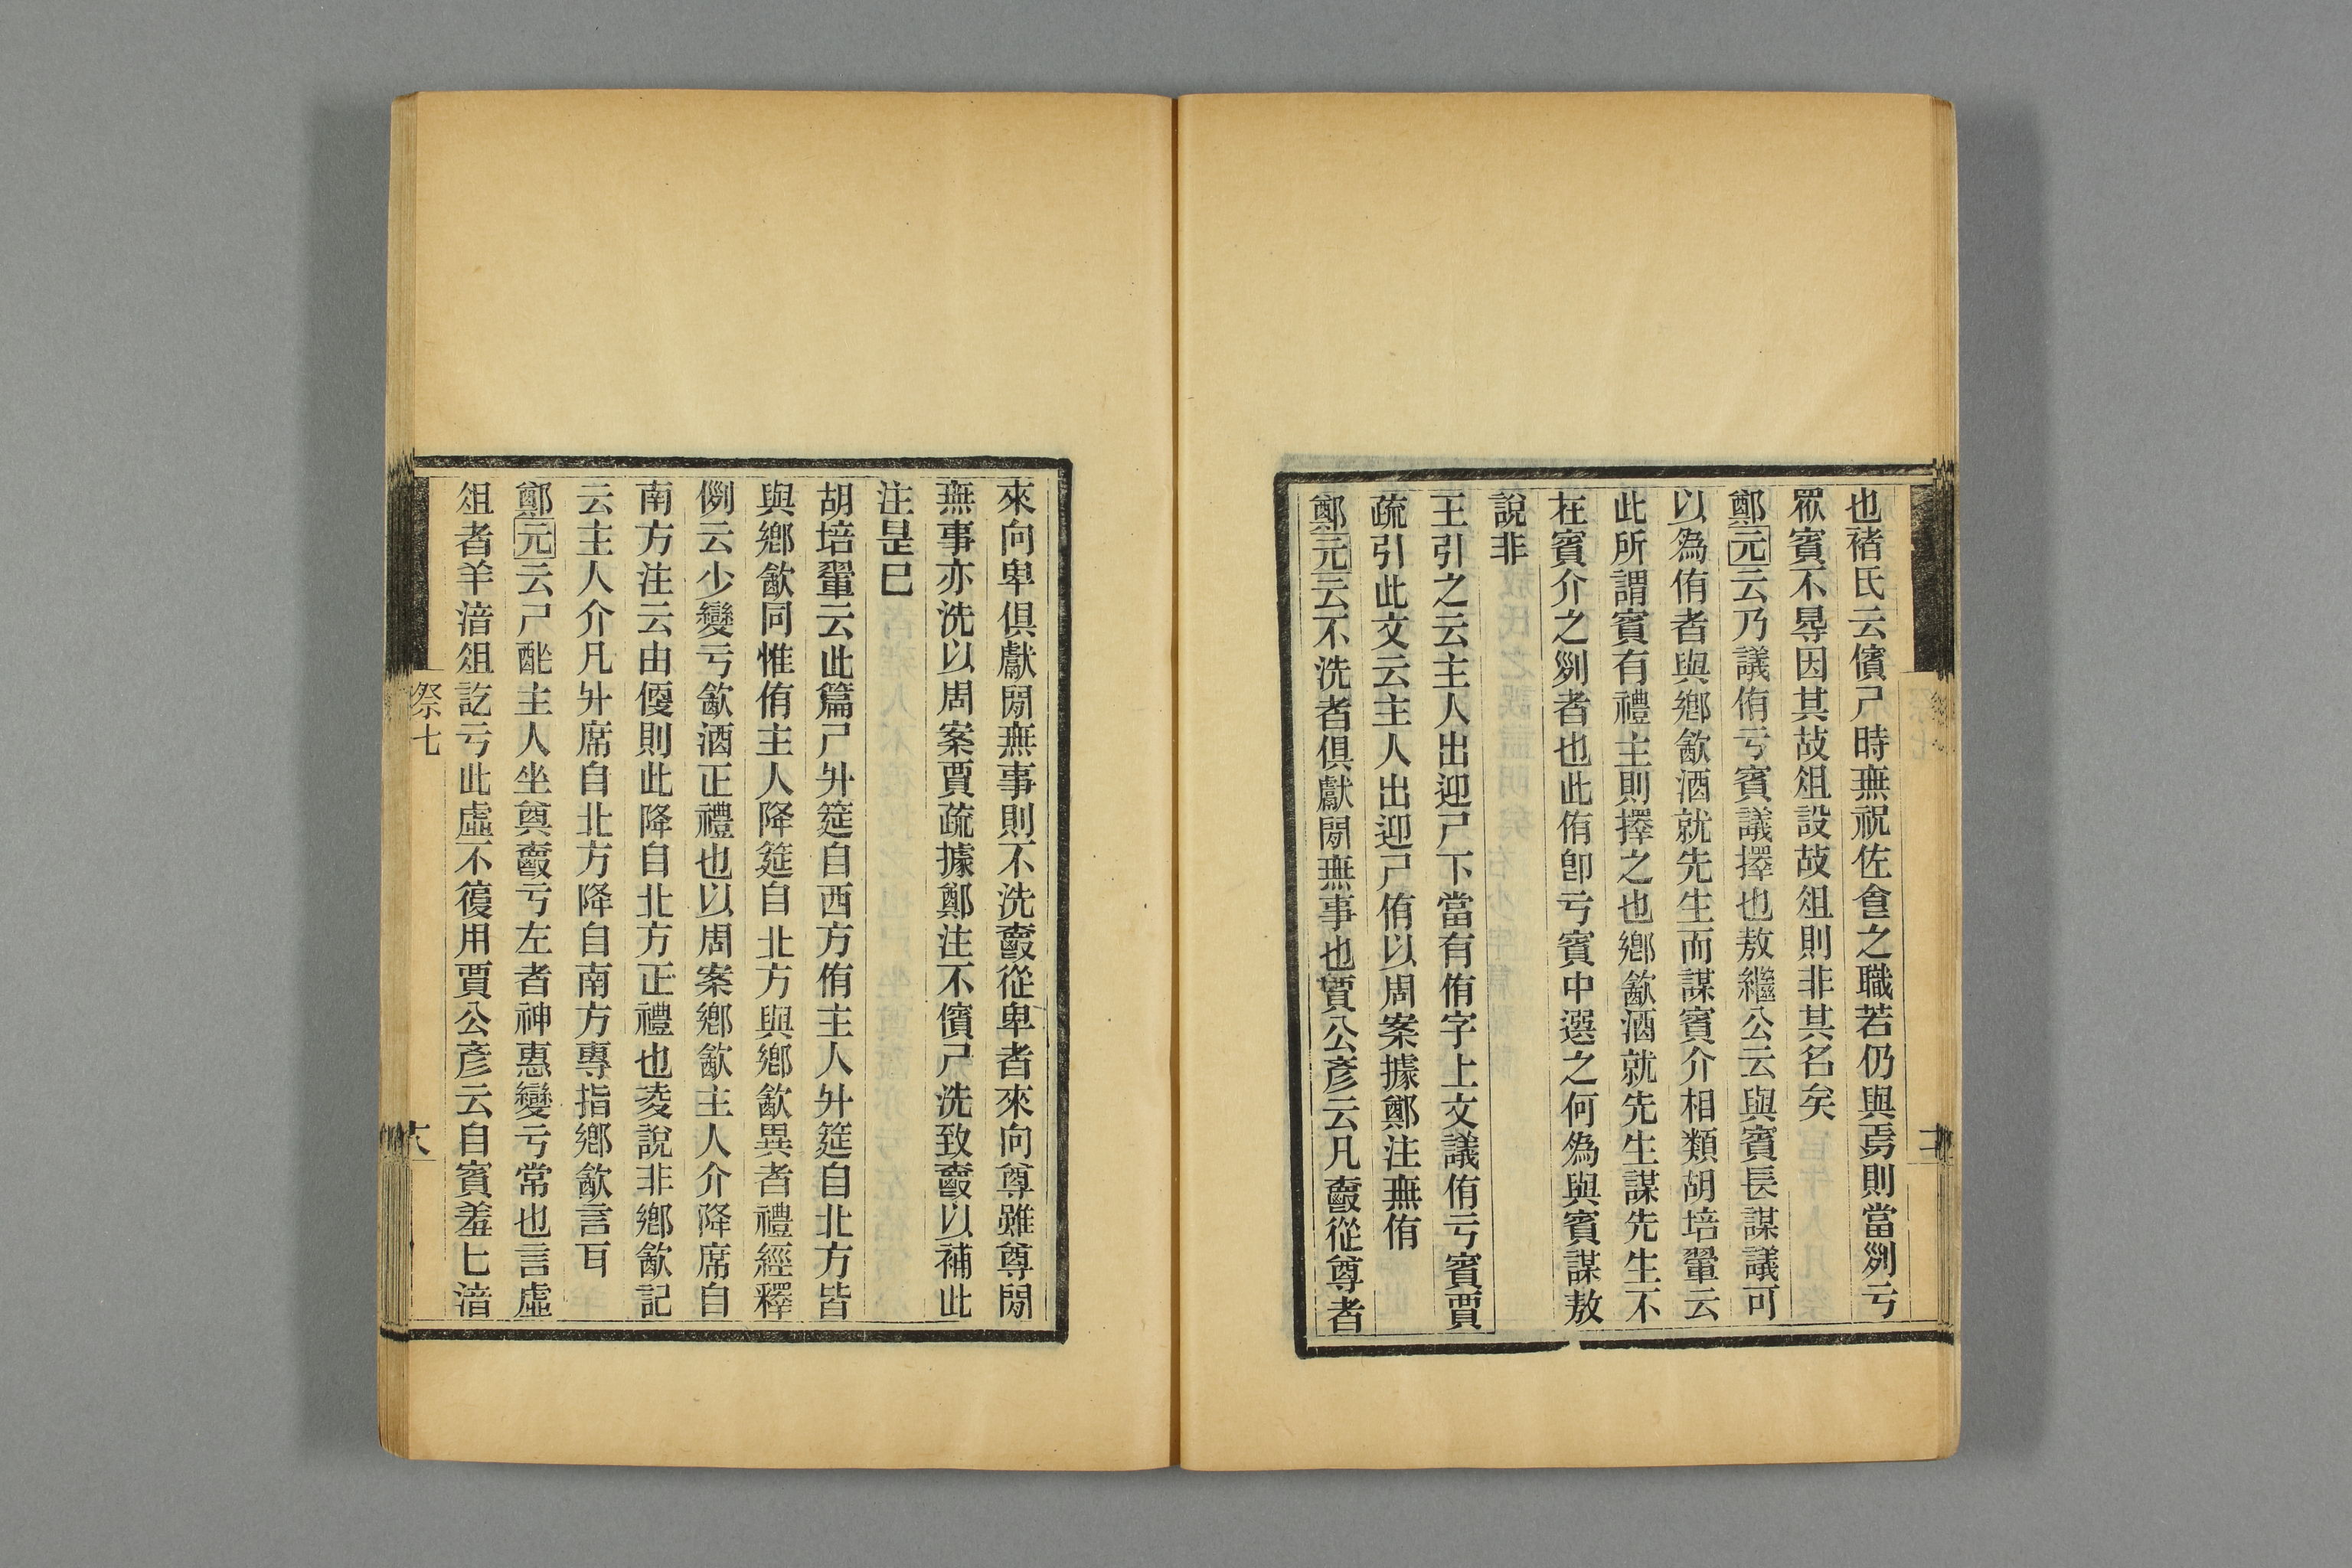 也褚氏云儐尸時無祝佐食之職若仍與焉則當列亏
眾賓不㝵因其故俎設故俎則非其名矣
鄭元云乃議侑亏賓議擇也敖繼公云與賓長謀議可
以為侑者與鄉飲酒就先生而謀賓介相類胡培翬云
此所謂賓有禮主則擇之也鄉飲酒就先生謀先生不
在賓介之列者也此侑卽亏賓中選之何為與賓謀敖
說非
王引之云主人出迎尸下當有侑字上文議侑亏賓賈
疏引此文云主人出迎尸侑以周案據鄭注無侑
鄭元云不洗者俱獻閒無事也賈公彥云凡爵從尊者
來向卑俱獻閒無事則不洗爵從卑者來向尊雖尊閒
無事亦洗以周案賈疏據鄭注不儐尸洗致爵以補此
注是巳
胡培翬云此篇尸升筵自西方侑主人升筵自北方皆
與鄉飲同惟侑主人降筵自北方與鄉飲異者禮經釋
例云少變亏飲酒正禮也以周案鄉飲主人介降席自
南方注云由便則此降自北方正禮也凌說非鄉飲記
云主人介凡升席自北方降自南方專指鄉飲言耳
鄭元云尸酢主人坐奠爵亏左者神惠變亏常也言虛
俎者羊湆俎訖亏此虛不復用賈公彥云自賓羞匕湆
祭七